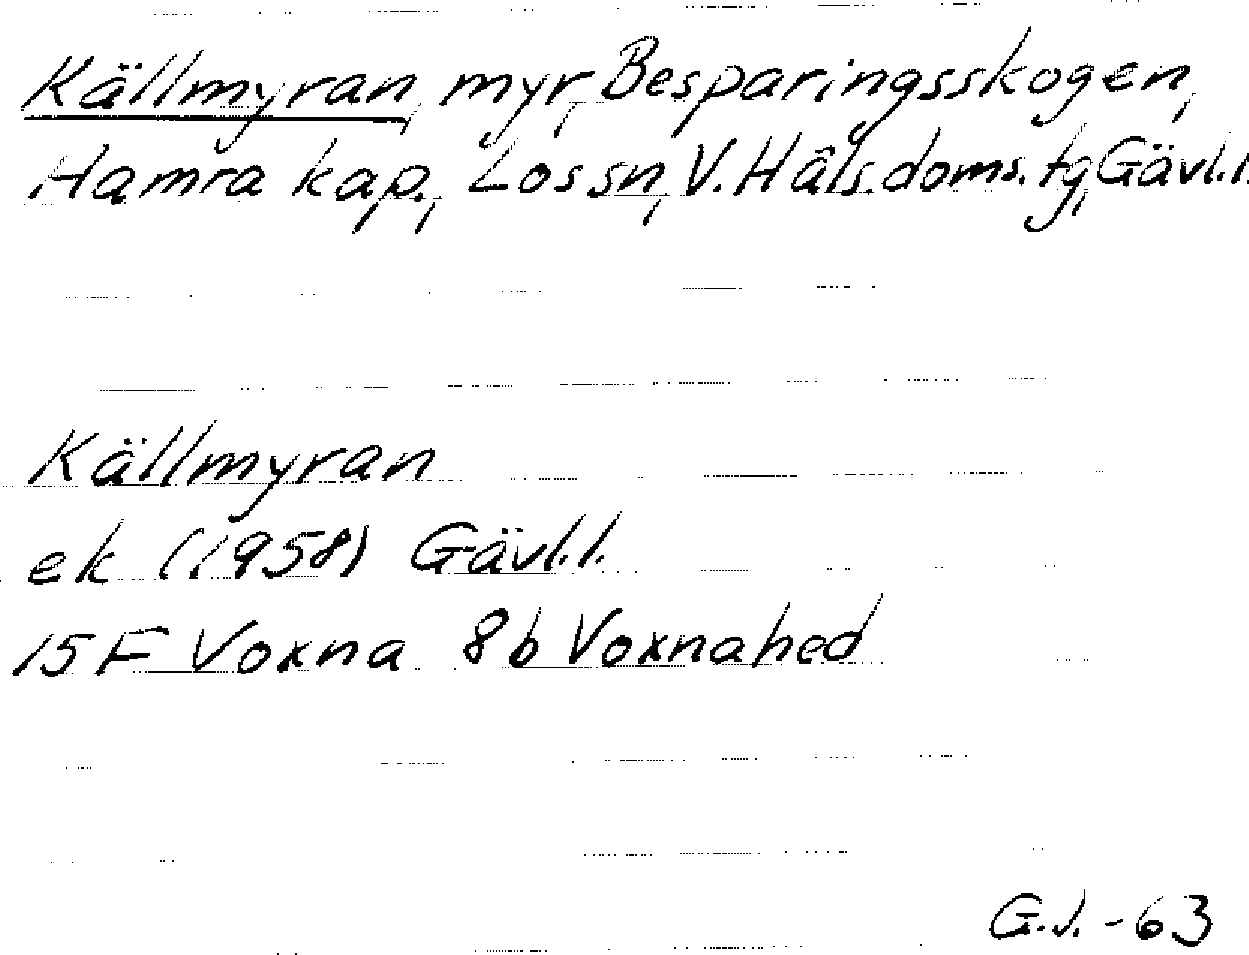 Källmyran, myr, Besparingsskogen,
Hamra kap., Los sn, V. Häls. doms. tg, Gävl.l.
Källmyran
ek (1958) Gävl.l.
15 F Voxna 8b Voxnahed
G.J. -63